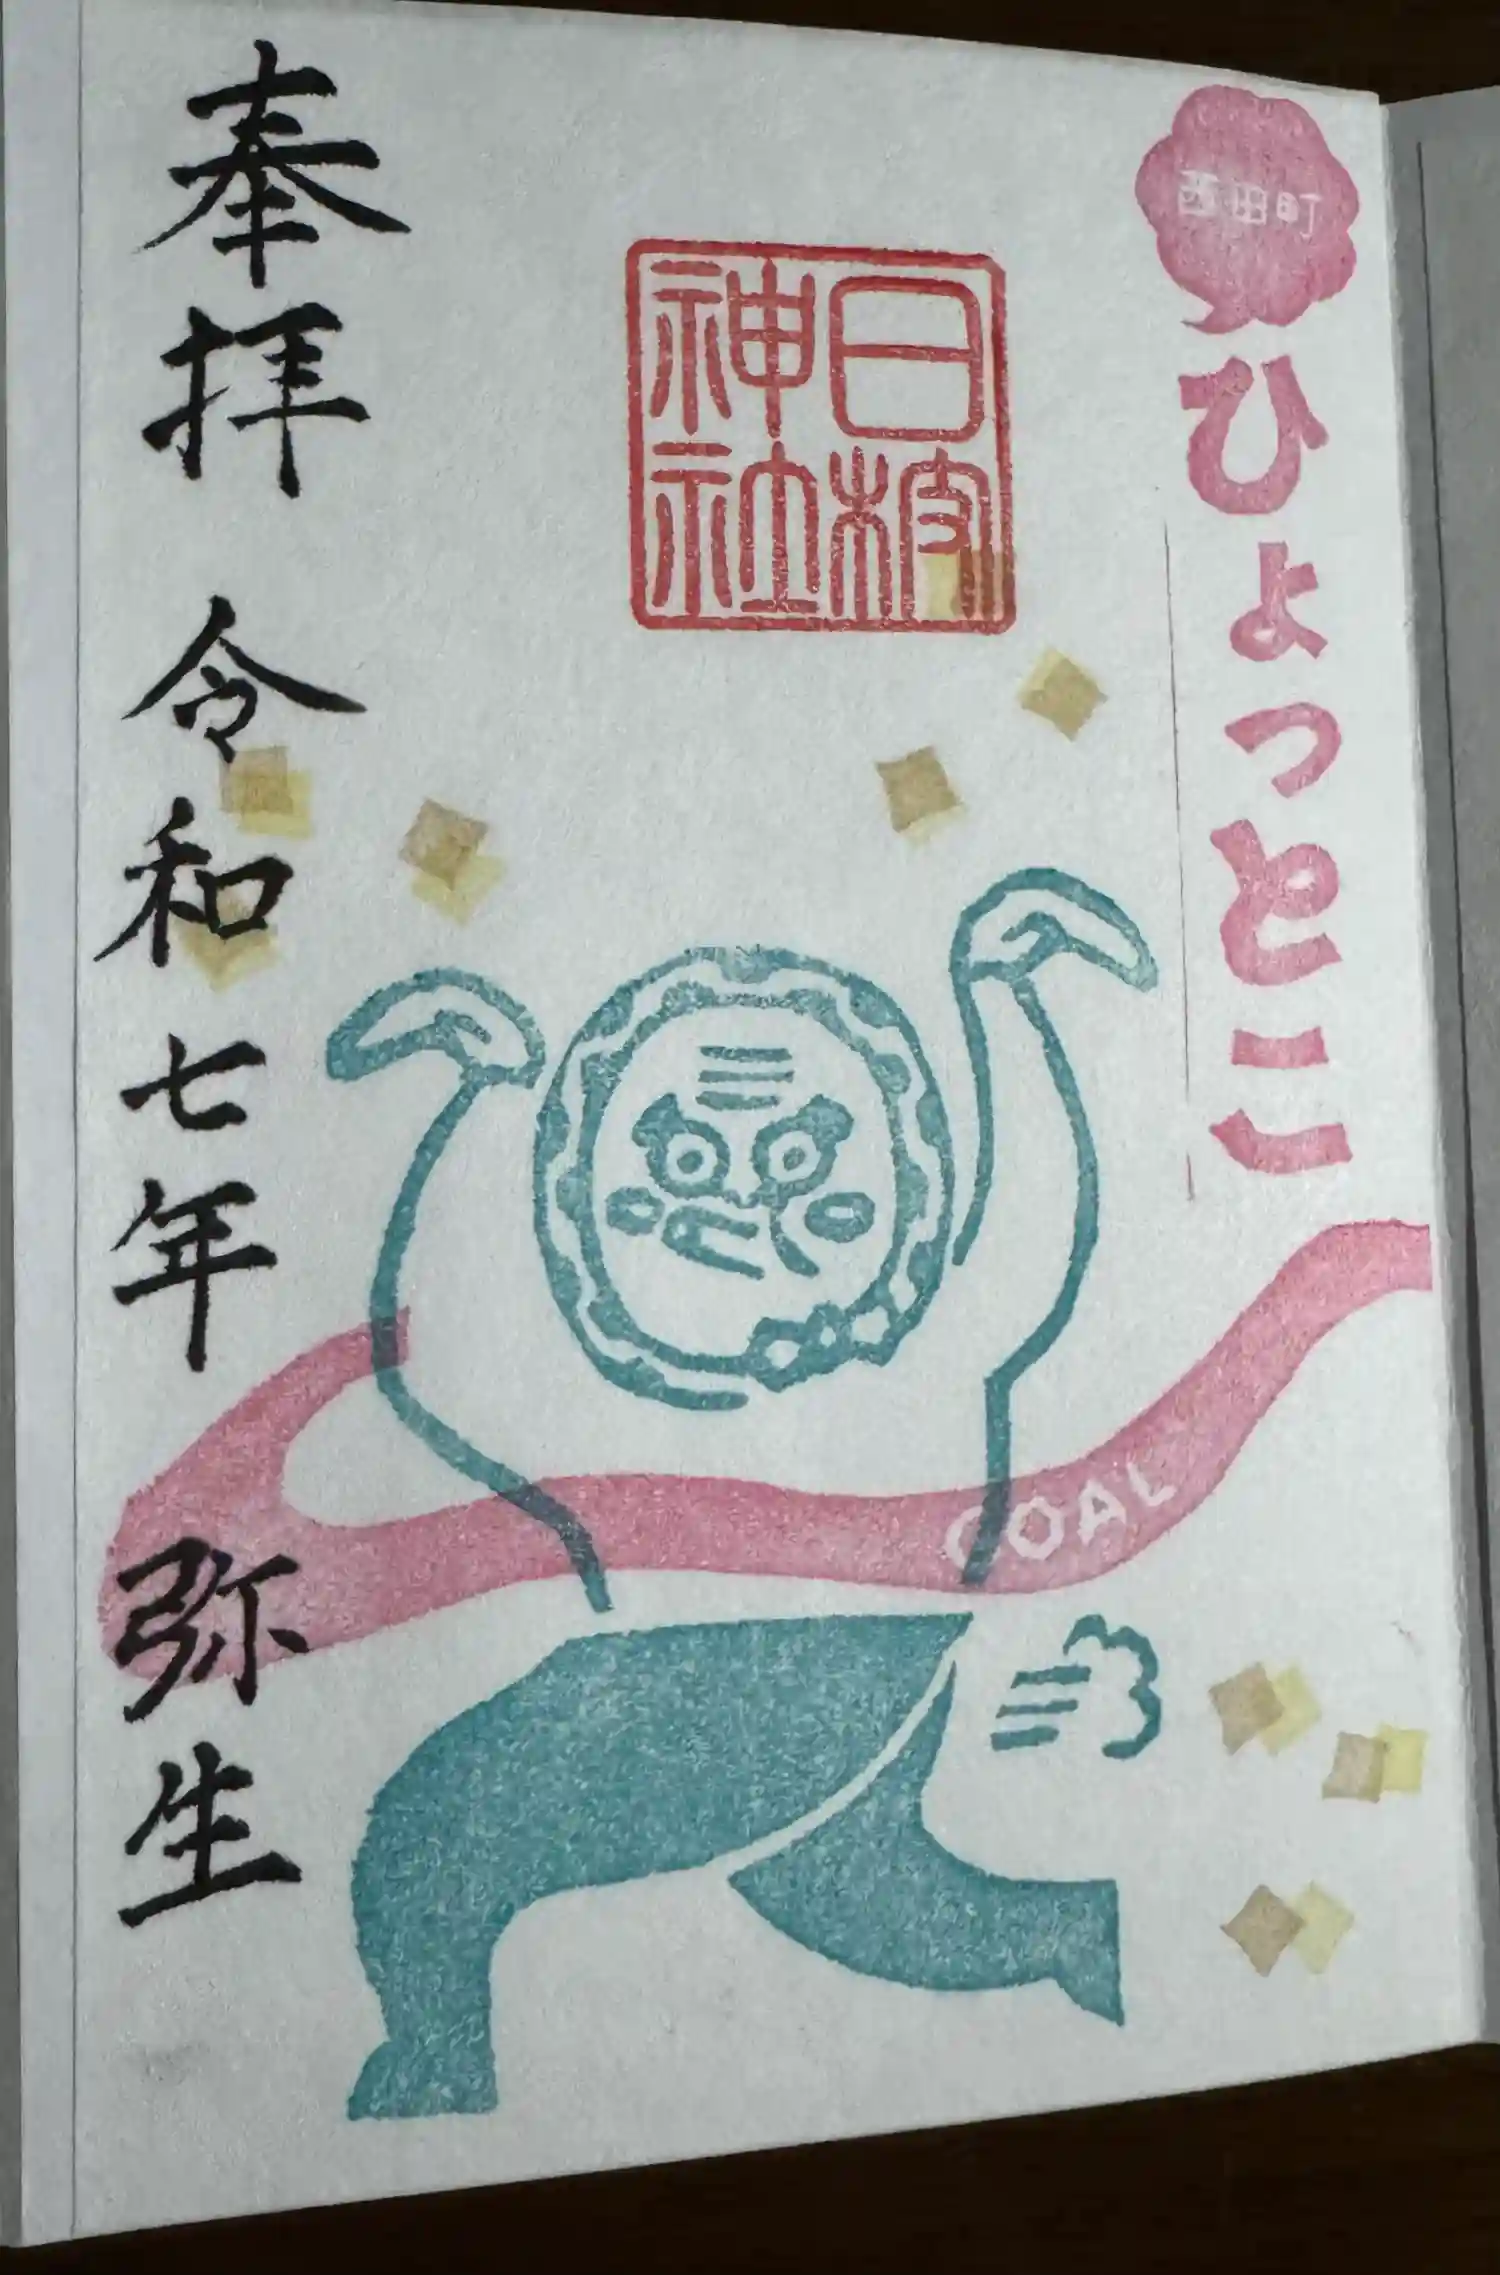 西田町
ひょっとこ
日枝
神社
COAL
奉拝 令和七年 弥生